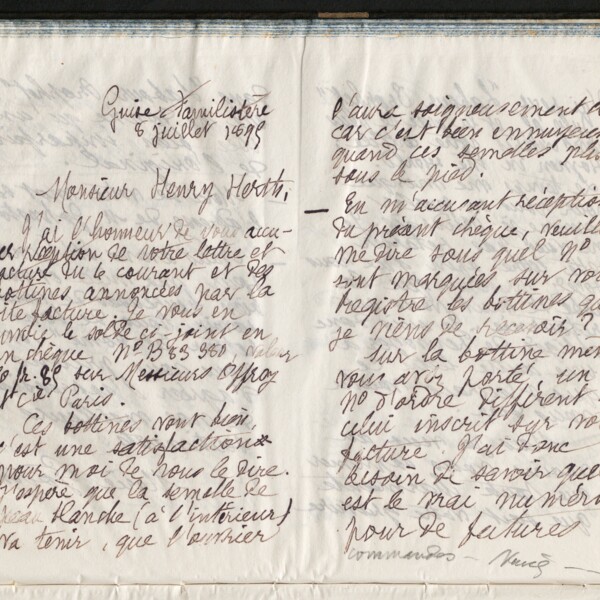 Guise Familistère
8 juillet 1895
Monsieur Henry Hertth,
J'ai l'honneur de vous accu-
ser réception de votre lettre et
facture du 6 courant et des
bottines annoncées par la
dite facture. Je vous en
le solde ci-joint en
un chèque N° B 83 380, valeur
fr. 85 sur Messieurs Offroy
& Cie Paris.
Ces bottines vont bien,
c'est une satisfaction
pour moi de vous le dire.
J'espère que la semelle de
peau blanche (à l'intérieur)
va tenir, que l'ouvrier
l'aura soigneusement
car c'est bien ennuyeux
quand ces semelles
sous le pied.
— En m'accusant réception
du présent chèque, veuillez
me dire sous quel N°
sont marquées sur
registre les bottines que
je viens de recevoir ?
Sur la bottine même
vous avez porté un
N° d'ordre différent
celui inscrit sur
facture. J'ai donc
besoin de savoir quel
est le vrai numéro
pour de futures
commandes —